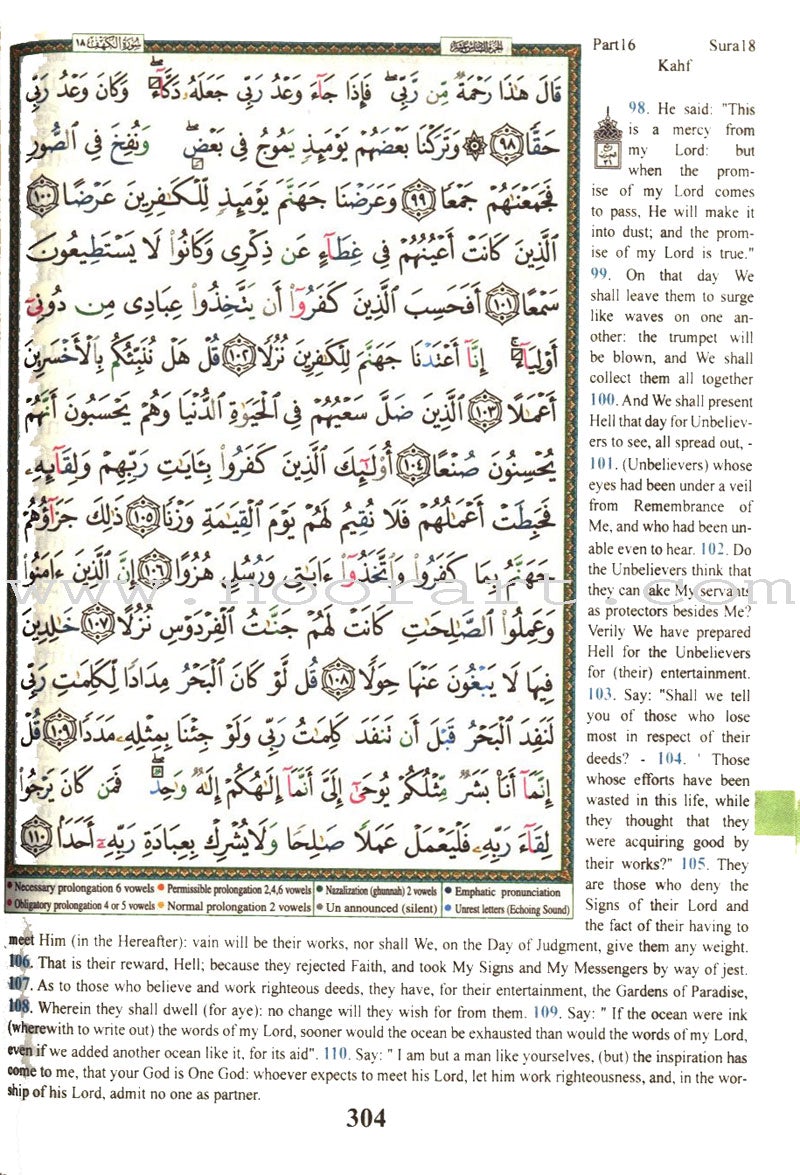 سُورَةُ الكَهْف ١٨
Part16 Sura18
Kahf
قَالَ هَـٰذَا رَحْمَةٌ مِّن رَّبِّى ۖ فَإِذَا جَآءَ وَعْدُ رَبِّى جَعَلَهُۥ دَكَّآءَ ۖ وَكَانَ وَعْدُ رَبِّى
حَقًّا ﴿٩٨﴾ ۞ وَتَرَكْنَا بَعْضَهُمْ يَوْمَئِذٍ يَمُوجُ فِى بَعْضٍ ۖ وَنُفِخَ فِى الصُّورِ
فَجَمَعْنَـٰهُمْ جَمْعًا ﴿٩٩﴾ وَعَرَضْنَا جَهَنَّمَ يَوْمَئِذٍ لِّلْكَـٰفِرِينَ عَرْضًا ﴿١٠٠﴾
الَّذِينَ كَانَتْ أَعْيُنُهُمْ فِى غِطَآءٍ عَن ذِكْرِى وَكَانُوا۟ لَا يَسْتَطِيعُونَ
سَمْعًا ﴿١٠١﴾ أَفَحَسِبَ الَّذِينَ كَفَرُوٓا۟ أَن يَتَّخِذُوا۟ عِبَادِى مِن دُونِىٓ
أَوْلِيَآءَ ۚ إِنَّآ أَعْتَدْنَا جَهَنَّمَ لِلْكَـٰفِرِينَ نُزُلًا ﴿١٠٢﴾ قُلْ هَلْ نُنَبِّئُكُم بِالْأَخْسَرِينَ
أَعْمَـٰلًا ﴿١٠٣﴾ الَّذِينَ ضَلَّ سَعْيُهُمْ فِى الْحَيَوٰةِ الدُّنْيَا وَهُمْ يَحْسَبُونَ أَنَّهُمْ
يُحْسِنُونَ صُنْعًا ﴿١٠٤﴾ أُو۟لَـٰٓئِكَ الَّذِينَ كَفَرُوا۟ بِـَٔايَـٰتِ رَبِّهِمْ وَلِقَآئِهِۦ
فَحَبِطَتْ أَعْمَـٰلُهُمْ فَلَا نُقِيمُ لَهُمْ يَوْمَ الْقِيَـٰمَةِ وَزْنًا ﴿١٠٥﴾ ذَٰلِكَ جَزَآؤُهُمْ
جَهَنَّمُ بِمَا كَفَرُوا۟ وَاتَّخَذُوٓا۟ ءَايَـٰتِى وَرُسُلِى هُزُوًا ﴿١٠٦﴾ إِنَّ الَّذِينَ ءَامَنُوا۟
وَعَمِلُوا۟ الصَّـٰلِحَـٰتِ كَانَتْ لَهُمْ جَنَّـٰتُ الْفِرْدَوْسِ نُزُلًا ﴿١٠٧﴾ خَـٰلِدِينَ
فِيهَا لَا يَبْغُونَ عَنْهَا حِوَلًا ﴿١٠٨﴾ قُل لَّوْ كَانَ الْبَحْرُ مِدَادًا لِّكَلِمَـٰتِ رَبِّى
لَنَفِدَ الْبَحْرُ قَبْلَ أَن تَنفَدَ كَلِمَـٰتُ رَبِّى وَلَوْ جِئْنَا بِمِثْلِهِۦ مَدَدًا ﴿١٠٩﴾ قُلْ
إِنَّمَآ أَنَا۠ بَشَرٌ مِّثْلُكُمْ يُوحَىٰٓ إِلَىَّ أَنَّمَآ إِلَـٰهُكُمْ إِلَـٰهٌ وَٰحِدٌ ۖ فَمَن كَانَ يَرْجُوا۟
لِقَآءَ رَبِّهِۦ فَلْيَعْمَلْ عَمَلًا صَـٰلِحًا وَلَا يُشْرِكْ بِعِبَادَةِ رَبِّهِۦٓ أَحَدًۢا ﴿١١٠﴾
• Necessary prolongation 6 vowels • Permissible prolongation 2,4,6 vowels • Nazalization (ghunnah) 2 vowels • Emphatic pronunciation
• Obligatory prolongation 4 or 5 vowels • Normal prolongation 2 vowels • Un announced (silent) • Unrest letters (Echoing Sound)
98. He said: "This
is a mercy from
my Lord: but
when the prom-
ise of my Lord comes
to pass, He will make it
into dust; and the prom-
ise of my Lord is true."
99. On that day We
shall leave them to surge
like waves on one an-
other: the trumpet will
be blown, and We shall
collect them all together
100. And We shall present
Hell that day for Unbeliev-
ers to see, all spread out, -
101. (Unbelievers) whose
eyes had been under a veil
from Remembrance of
Me, and who had been un-
able even to hear. 102. Do
the Unbelievers think that
they can ake My servants
as protectors besides Me?
Verily We have prepared
Hell for the Unbelievers
for (their) entertainment.
103. Say: "Shall we tell
you of those who lose
most in respect of their
deeds? - 104. ' Those
whose efforts have been
wasted in this life, while
they thought that they
were acquiring good by
their works?" 105. They
are those who deny the
Signs of their Lord and
the fact of their having to
meet Him (in the Hereafter): vain will be their works, nor shall We, on the Day of Judgment, give them any weight.
106. That is their reward, Hell; because they rejected Faith, and took My Signs and My Messengers by way of jest.
107. As to those who believe and work righteous deeds, they have, for their entertainment, the Gardens of Paradise,
108. Wherein they shall dwell (for aye): no change will they wish for from them. 109. Say: " If the ocean were ink
(wherewith to write out) the words of my Lord, sooner would the ocean be exhausted than would the words of my Lord,
even if we added another ocean like it, for its aid". 110. Say: " I am but a man like yourselves, (but) the inspiration has
come to me, that your God is One God: whoever expects to meet his Lord, let him work righteousness, and, in the wor-
ship of his Lord, admit no one as partner.
304
www.noorart.com